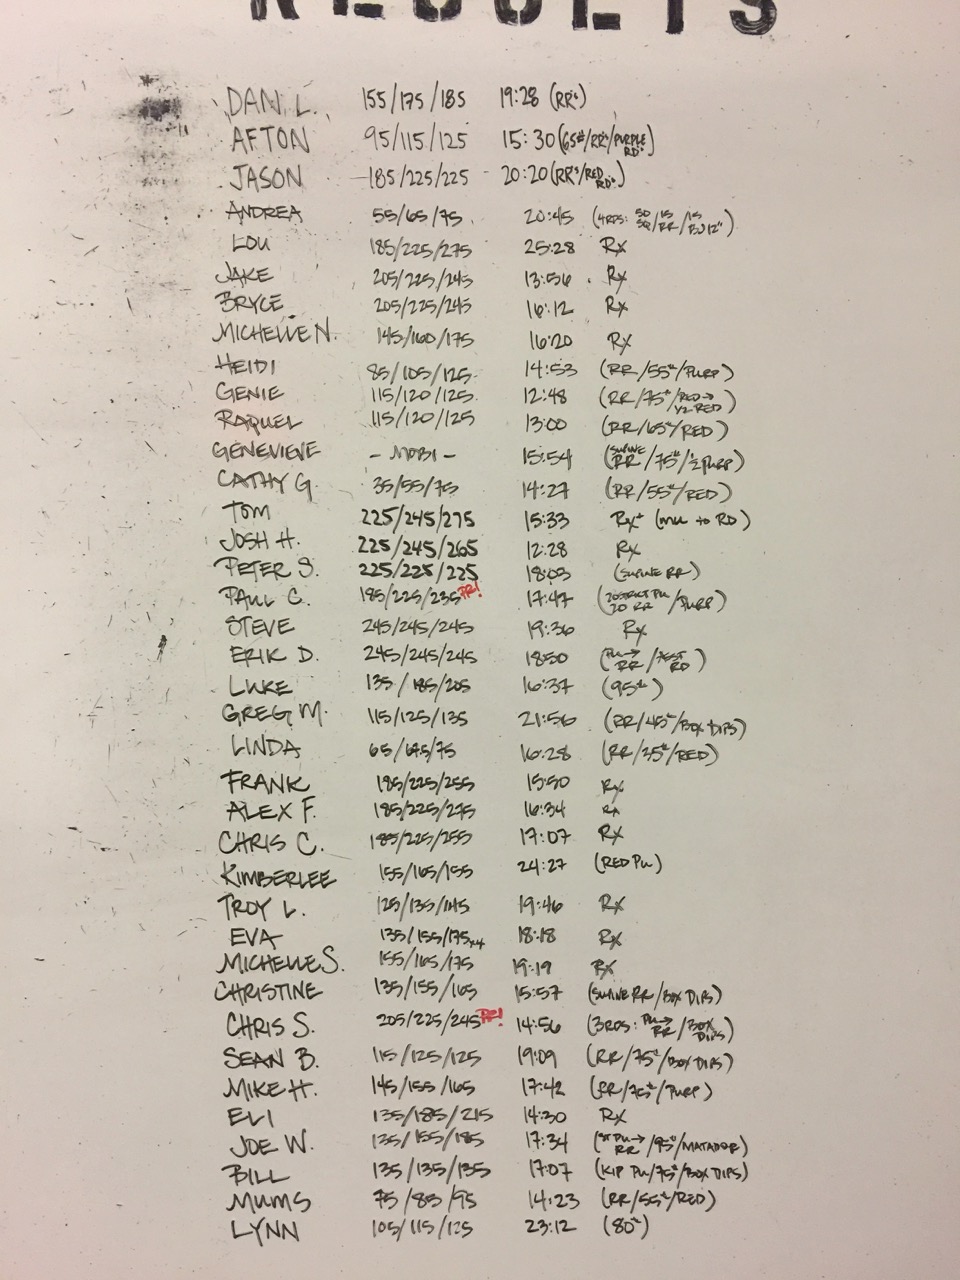 RESULTS
DAN L. 155/175/185 19:28 (RR's)
AFTON 95/115/125 15:30 (65#/RR's/PURPLE RD's)
JASON 185/225/225 20:20 (RR's/RED RD's)
ANDREA 55/65/75 20:45 (4 RDS: 50 SQ/15 RR/15 BJ 12")
LOU 185/225/275 25:28 Rx
JAKE 205/225/245 13:56 Rx
BRYCE 205/225/245 16:12 Rx
MICHELLE N. 145/160/175 16:20 Rx
HEIDI 85/105/125 14:53 (RR/55#/PURP)
GENIE 115/120/125 12:48 (RR/75#/RED→ 1/2 RED)
RAQUEL 115/120/125 13:00 (RR/65#/RED)
GENEVIEVE - MOBI - 15:54 (SUPINE RR/75#/½ PURP)
CATHY G. 35/55/75 14:27 (RR/55#/RED)
TOM 225/245/275 15:33 Rx+ (MU to RD)
JOSH H. 225/245/265 12:28 Rx
PETER S. 225/225/225 18:03 (SUPINE RR)
PAUL C. 185/225/235 PR! 17:47 (20 STRICT PU/20 RR/PURP)
STEVE 245/245/245 19:36 Rx
ERIK D. 245/245/245 18:50 (PU→RR/ RD)
LUKE 135/185/205 16:37 (95#)
GREG M. 115/125/135 21:56 (RR/45#/BOX DIPS)
LINDA 65/ /75 16:28 (RR/35#/RED)
FRANK 185/225/255 15:50 Rx
ALEX F. 185/225/275 16:34 Rx
CHRIS C. 185/225/255 17:07 Rx
KIMBERLEE 155/165/155 24:27 (RED PU)
TROY L. 125/135/145 19:46 Rx
EVA 135/155/175x4 18:18 Rx
MICHELLE S. 155/165/175 19:19 Rx
CHRISTINE 135/155/165 15:57 (SUPINE RR/BOX DIPS)
CHRIS S. 205/225/245 PR! 14:56 (3 RDS: PU→RR/BOX DIPS)
SEAN B. 115/125/125 19:09 (RR/75#/BOX DIPS)
MIKE H. 145/155/165 17:42 (RR/75#/PURP)
ELI 135/185/215 14:30 Rx
JOE W. 135/155/185 17:34 (ST PU→RR/95#/MATADOR)
BILL 135/135/135 17:07 (KIP PU/75#/BOX DIPS)
MUMS 75/85/95 14:23 (RR/55#/RED)
LYNN 105/115/125 23:12 (80#)